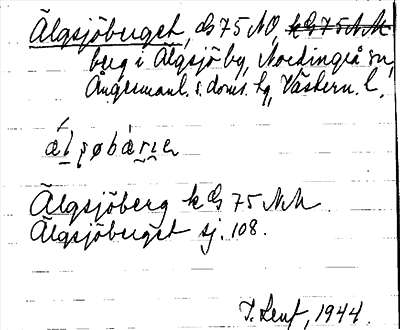 Älgsjöberget, G 75 NO k G 75 N.M.
berg i Älgsjö by, Nordingrå sn,
Ångermanl. s. doms. hg, Västern. l.
Älgsjöberg k G 75 N.M.
Älgsjöberget sj. 108.
1944.